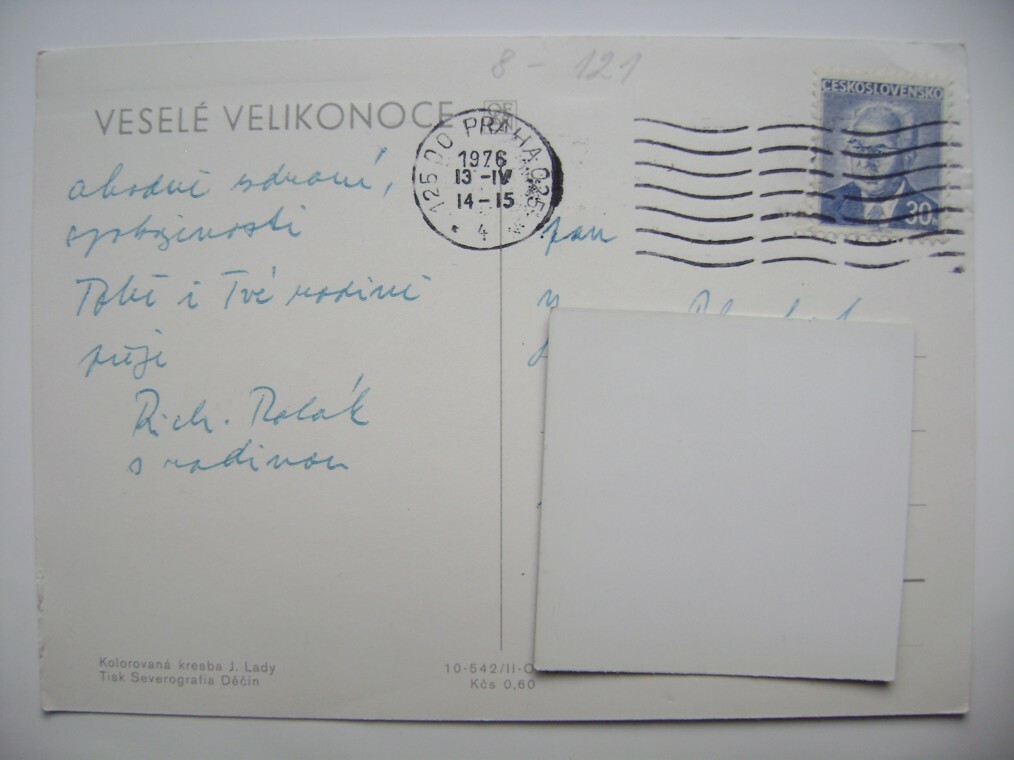 8 - 121
VESELÉ VELIKONOCE
ČESKOSLOVENSKO
30
125 00 PRAHA 025
1976
13-IV
14-15
4
a hodně zdraví,
spokojenosti
Tobě i Tvé rodině
přeje
Rich. Polák
s rodinou
pan
Kolorovaná kresba J. Lady
Tisk Severografia Děčín
10-542/II-
Kčs 0,60